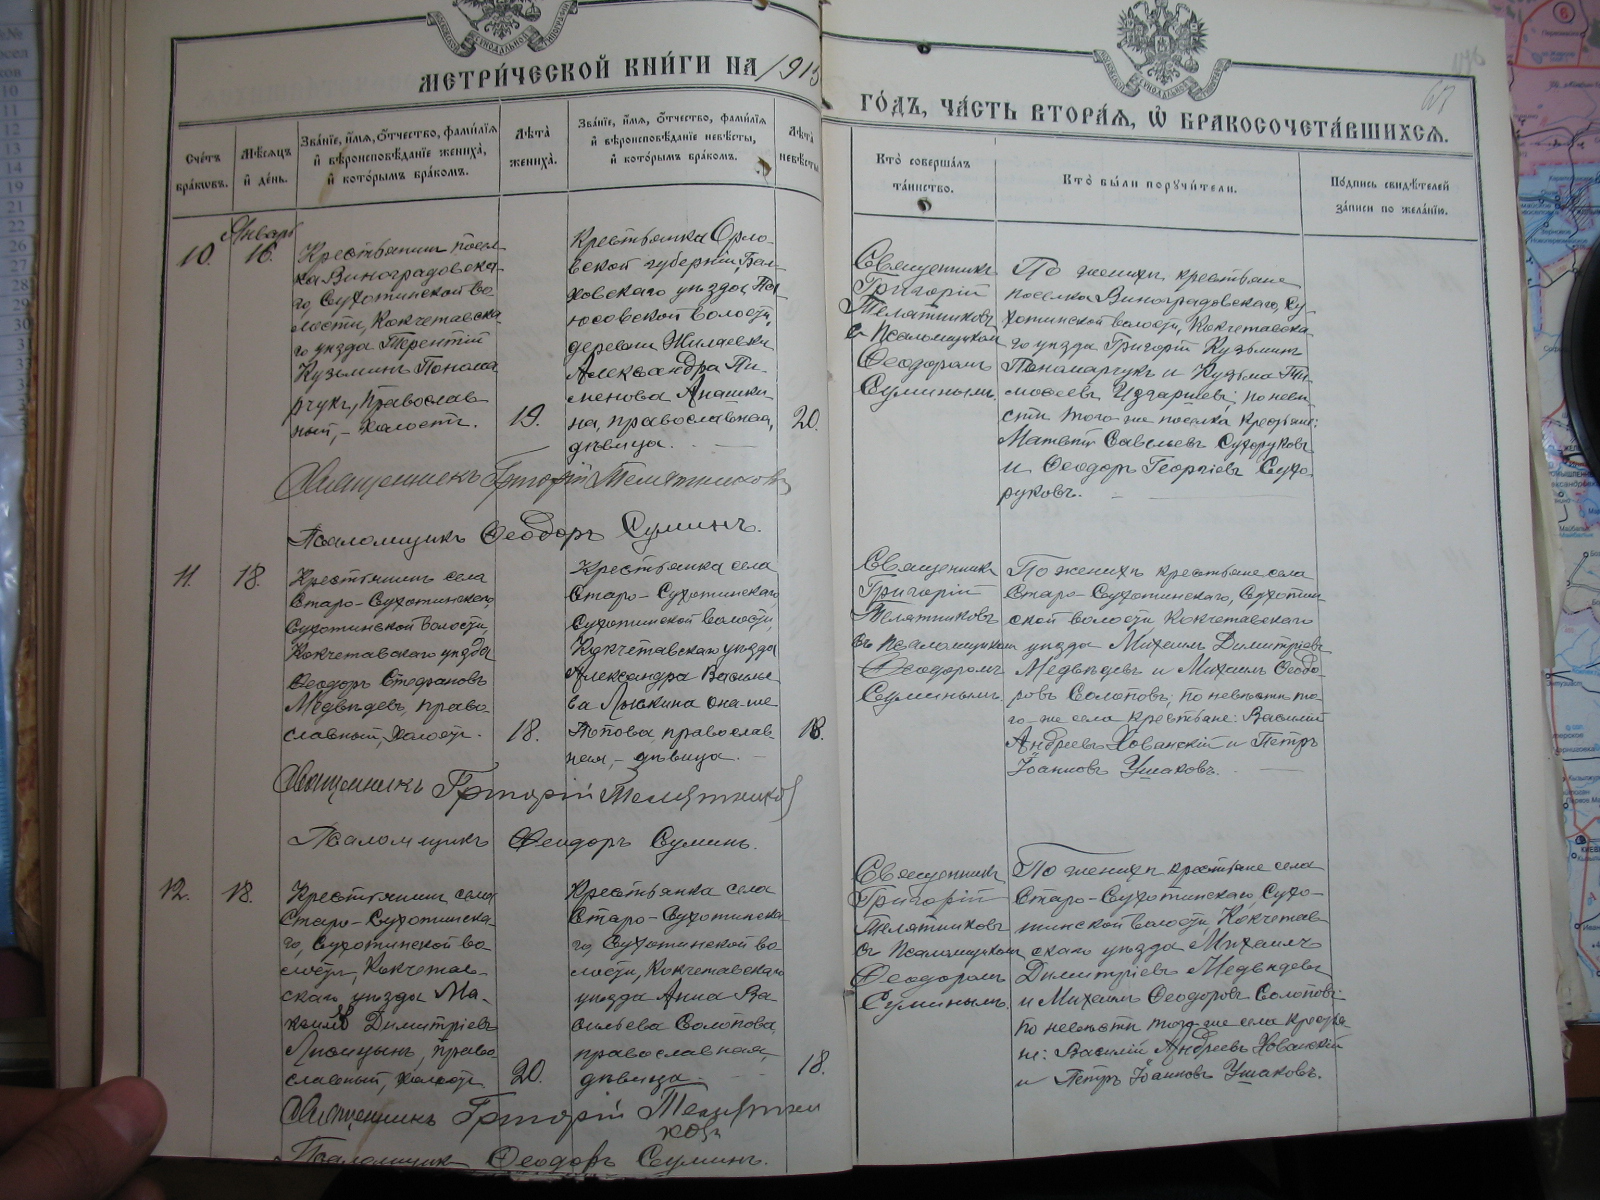 МЕТРИ́ЧЕСКОЙ КНИ́ГИ НА 1915
ГО́ДЪ, ЧА́СТЬ ВТОРА́Я, Ѡ БРАКОСОЧЕТА́ВШИХСЯ.
Сче́тъ бра́ковъ.
Мѣ́сяцъ и де́нь.
Зва́нїе, и́мя, о́тчество, фами́лїя и вѣроисповѣ́данїе жениха̀, и кото́рымъ бра́комъ.
Лѣ́та жениха̀.
Зва́нїе, и́мя, о́тчество, фами́лїя и вѣроисповѣ́данїе невѣ́сты, и кото́рымъ бра́комъ.
Лѣ́та невѣ́сты
Кто̀ соверша́лъ
та́инство.
Кто̀ бы́ли поручи́тели.
По́дпись свидѣ́телей
за́писи по жела́нїю.
Январь
10.
16.
Крестьянинъ посел-
ка Виноградовска-
го, Сухотинской во
лости, Кокчетавска
го уѣзда Терентій
Кузьминъ Понома
рчукъ, православ
ный, - холостъ.
19.
Крестьянка Орло-
вской губерніи, Бол-
ховскаго уѣзда,
волости,
деревни
Александра Пи-
менова
на, православная,
дѣвица.
20.
Священникъ
Григорій
Телятниковъ
с Псаломщикомъ
Ѳеодоромъ
Суминымъ.
По женихѣ крестьяне
поселка Виноградовскаго, Су-
хотинской волости, Кокчетавска
го уѣзда Григорій Кузьминъ
Пономарчукъ и Кузьма Ти-
моѳеевъ по невѣ-
стѣ того-же поселка крестьяне:
Матвѣй Савельевъ Сухоруковъ
и Ѳеодоръ Георгіевъ Сухо-
руковъ.
Священникъ Григорій Телятниковъ
Псаломщикъ Ѳеодоръ Суминъ.
11.
18.
Крестьянинъ села
Старо-Сухотинскаго,
Сухотинской волости,
Кокчетавскаго уѣзда
Ѳеодоръ Стефановъ
Медвѣдевъ, право-
славный, холостъ.
18.
Крестьянка села
Старо-Сухотинскаго,
Сухотинской волости,
Кокчетавскаго уѣзда
Александра Василье
ва она-же
Попова, православ-
ная, - дѣвица.
18.
Священникъ
Григорій
Телятниковъ
съ Псаломщикомъ
Ѳеодоромъ
Суминымъ.
По женихѣ крестьяне села
Старо-Сухотинскаго, Сухотин-
ской волости Кокчетавскаго
уѣзда Михаилъ Димитріевъ
Медвѣдевъ и Михаилъ Ѳеодо-
ровъ Солоповъ; по невѣстѣ то-
го-же села крестьяне: Василій
Андреевъ Хованскій и Петръ
Іоанновъ Ушаковъ.
Священникъ Григорій Телятниковъ
Псаломщикъ Ѳеодоръ Суминъ.
12.
18.
Крестьянинъ села
Старо-Сухотинска-
го, Сухотинской во
лости, Кокчетав-
скаго уѣзда Ми-
хаилъ Димитріевъ
право
славный, холостъ
20.
Крестьянка села
Старо-Сухотинска-
го, Сухотинской во
лости, Кокчетавскаго
уѣзда Анна Ва
сильева Солопова,
православная,
дѣвица.
18.
Священникъ
Григорій
Телятниковъ
съ Псаломщикомъ
Ѳеодоромъ
Суминымъ.
По женихѣ крестьяне села
Старо-Сухотинскаго, Сухо-
тинской волости, Кокчетав-
скаго уѣзда Михаилъ
Димитріевъ Медвѣдевъ
и Михаилъ Ѳеодоровъ Солоповъ:
по невѣстѣ того-же села крестья-
не: Василій Андреевъ Хованскій
и Петръ Іоанновъ Ушаковъ.
Священникъ Григорій Телятни
ковъ
Псаломщикъ Ѳеодоръ Суминъ.